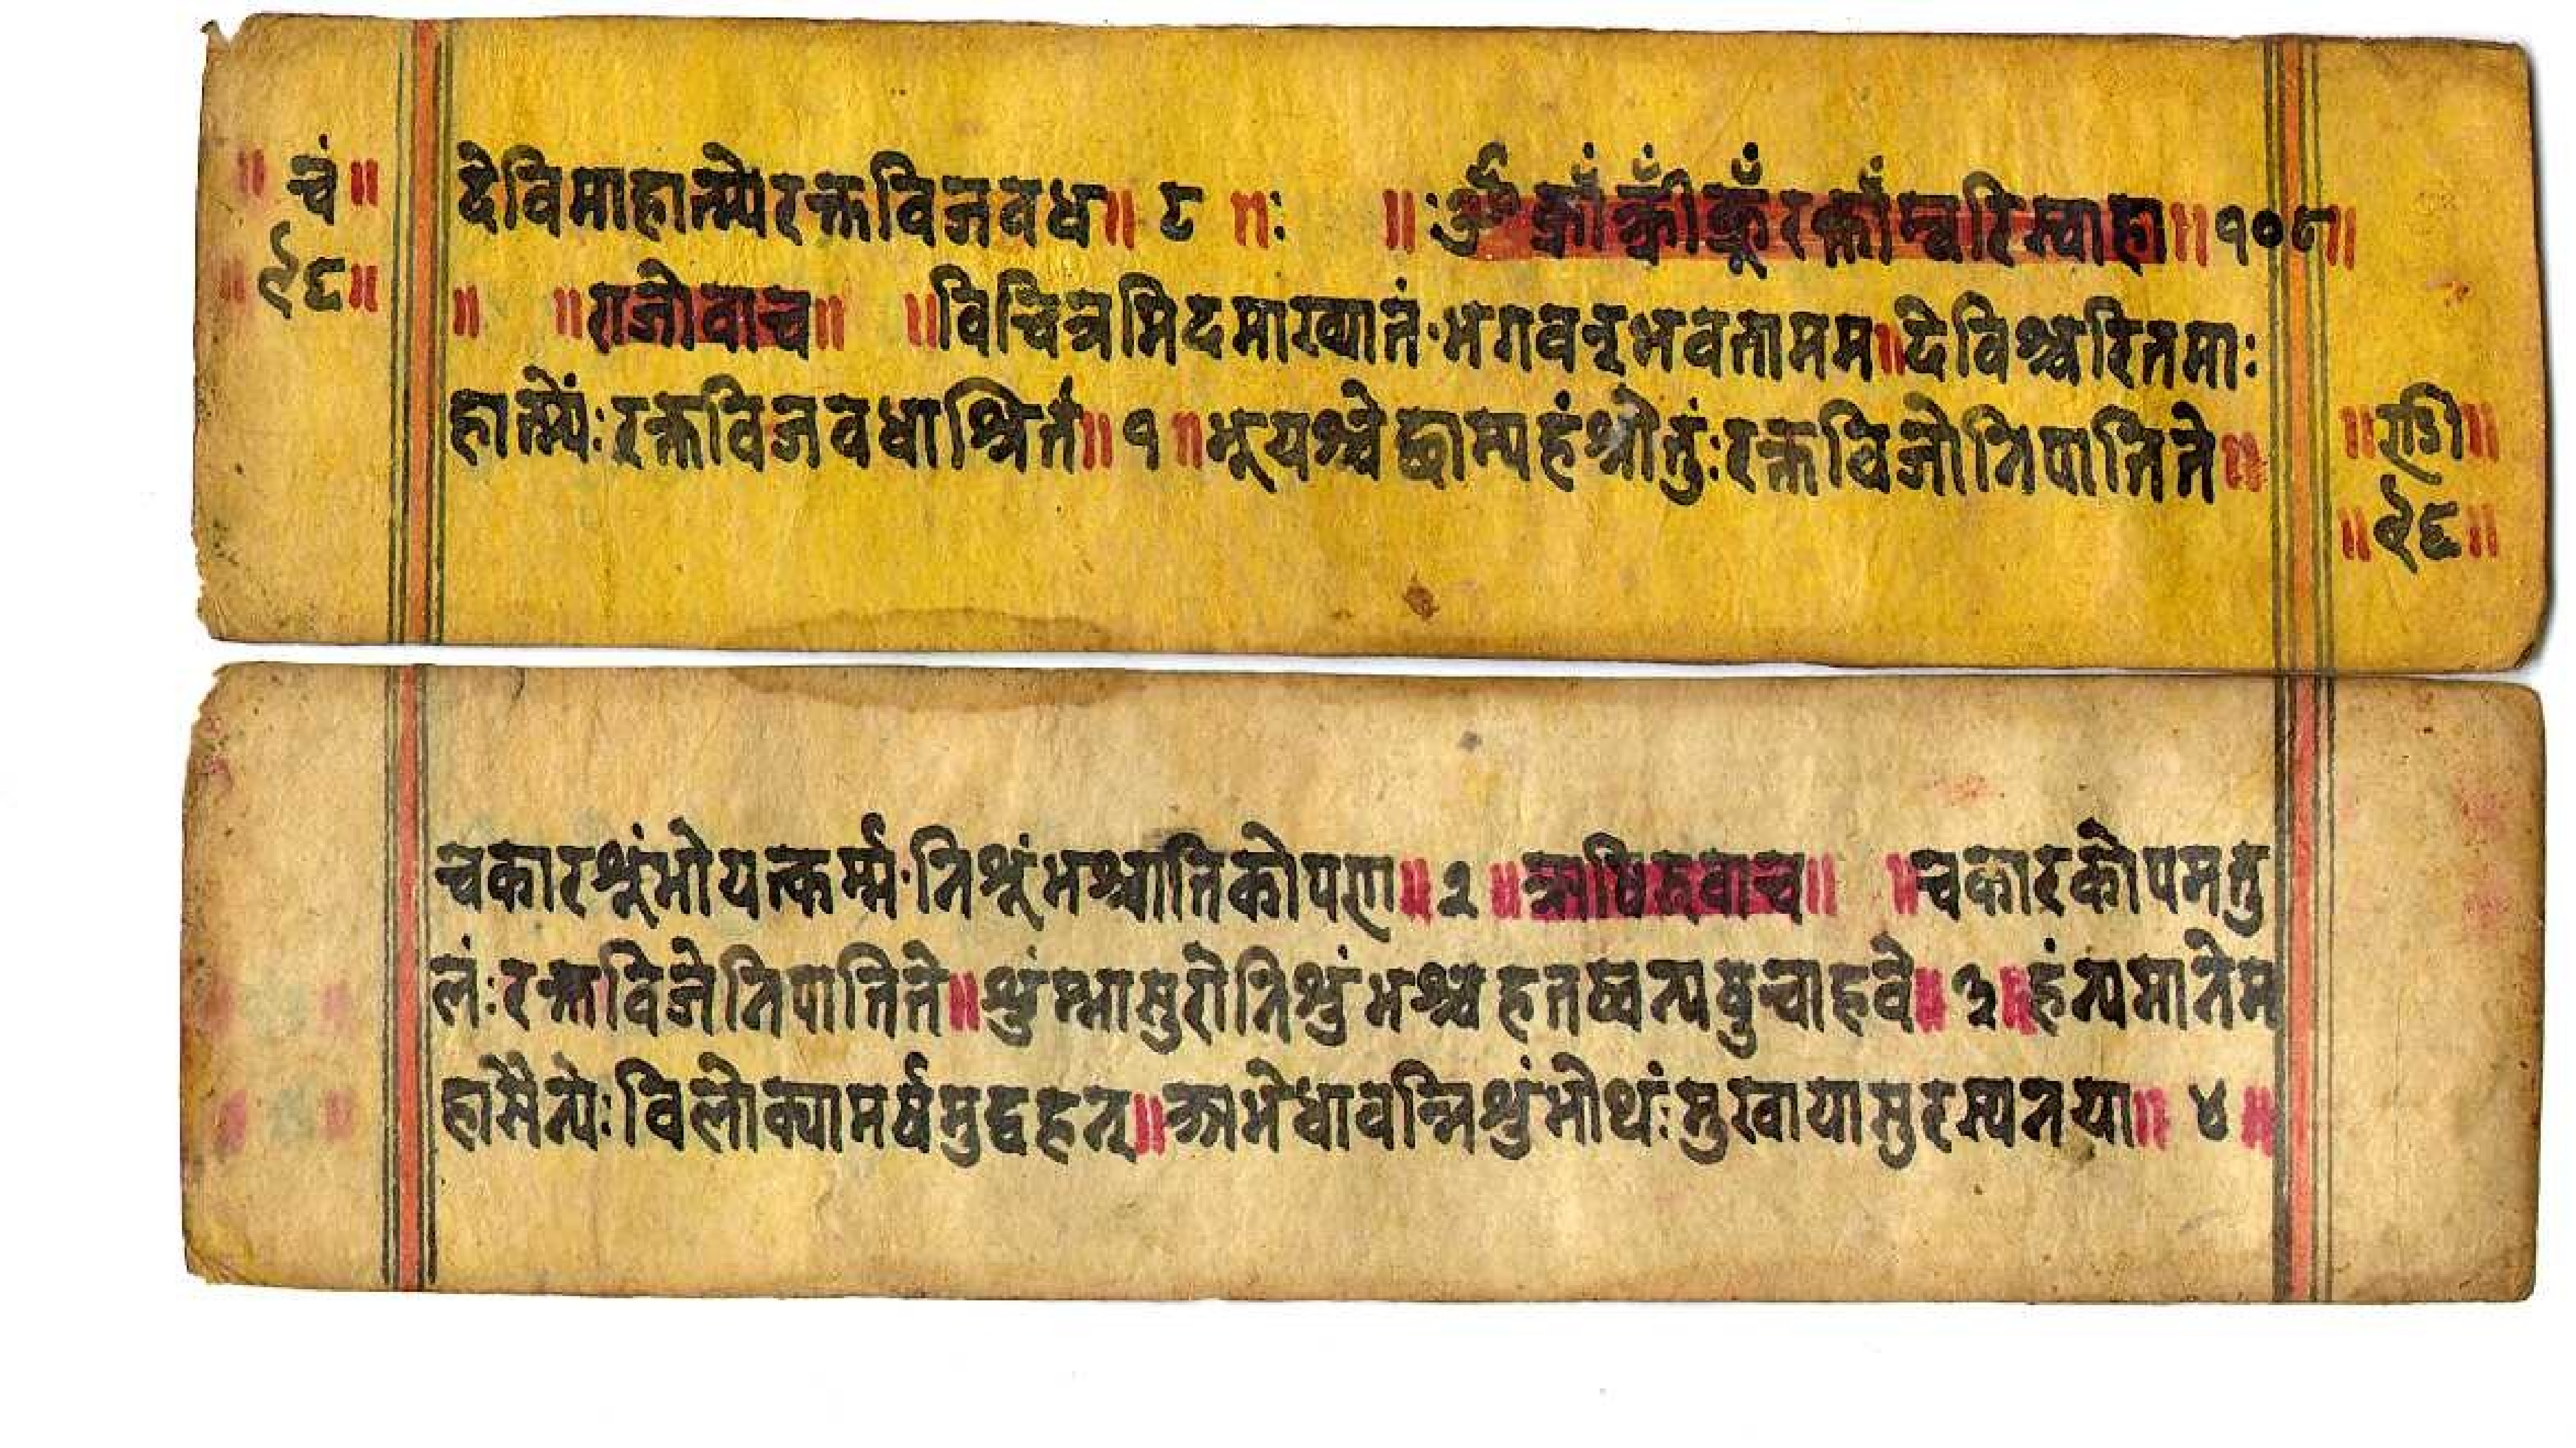 ॥ चं॥
॥ ९६॥
देविमाहात्म्ये रक्तविजवध॥ ८ ॥ः ॥ःॐ क्राँ क्रीँ क्रूँ रक्ताँम्वरिस्वाहा॥१०८॥
॥ ॥राजोवाच॥ ॥विचित्रमिदमाख्यातं·भगवन्भवतामम॥देविश्चरितमाः
हात्म्यंः रक्तविजवधाश्रितं॥१॥भूयश्चेछाम्यहंश्रोतुंःरक्तविजोनिपातिते॥
॥राडी॥
॥९६॥
चकारशूंभोयत्कर्म्म·निशूंभश्चातिकोपणा॥२॥ऋषिरुवाच॥ ॥चकारकोपमतु
लंःरक्तविजेनिपातिते॥शुंम्भासुरोनिशुंभश्चहतष्वन्यषुचाहवे॥३॥हंन्यमानेम
हासैन्येः विलोक्यामर्षमुद्वहन्॥अभेधावन्निशुंभोथंःमुखायासुरस्यनया॥ ४॥